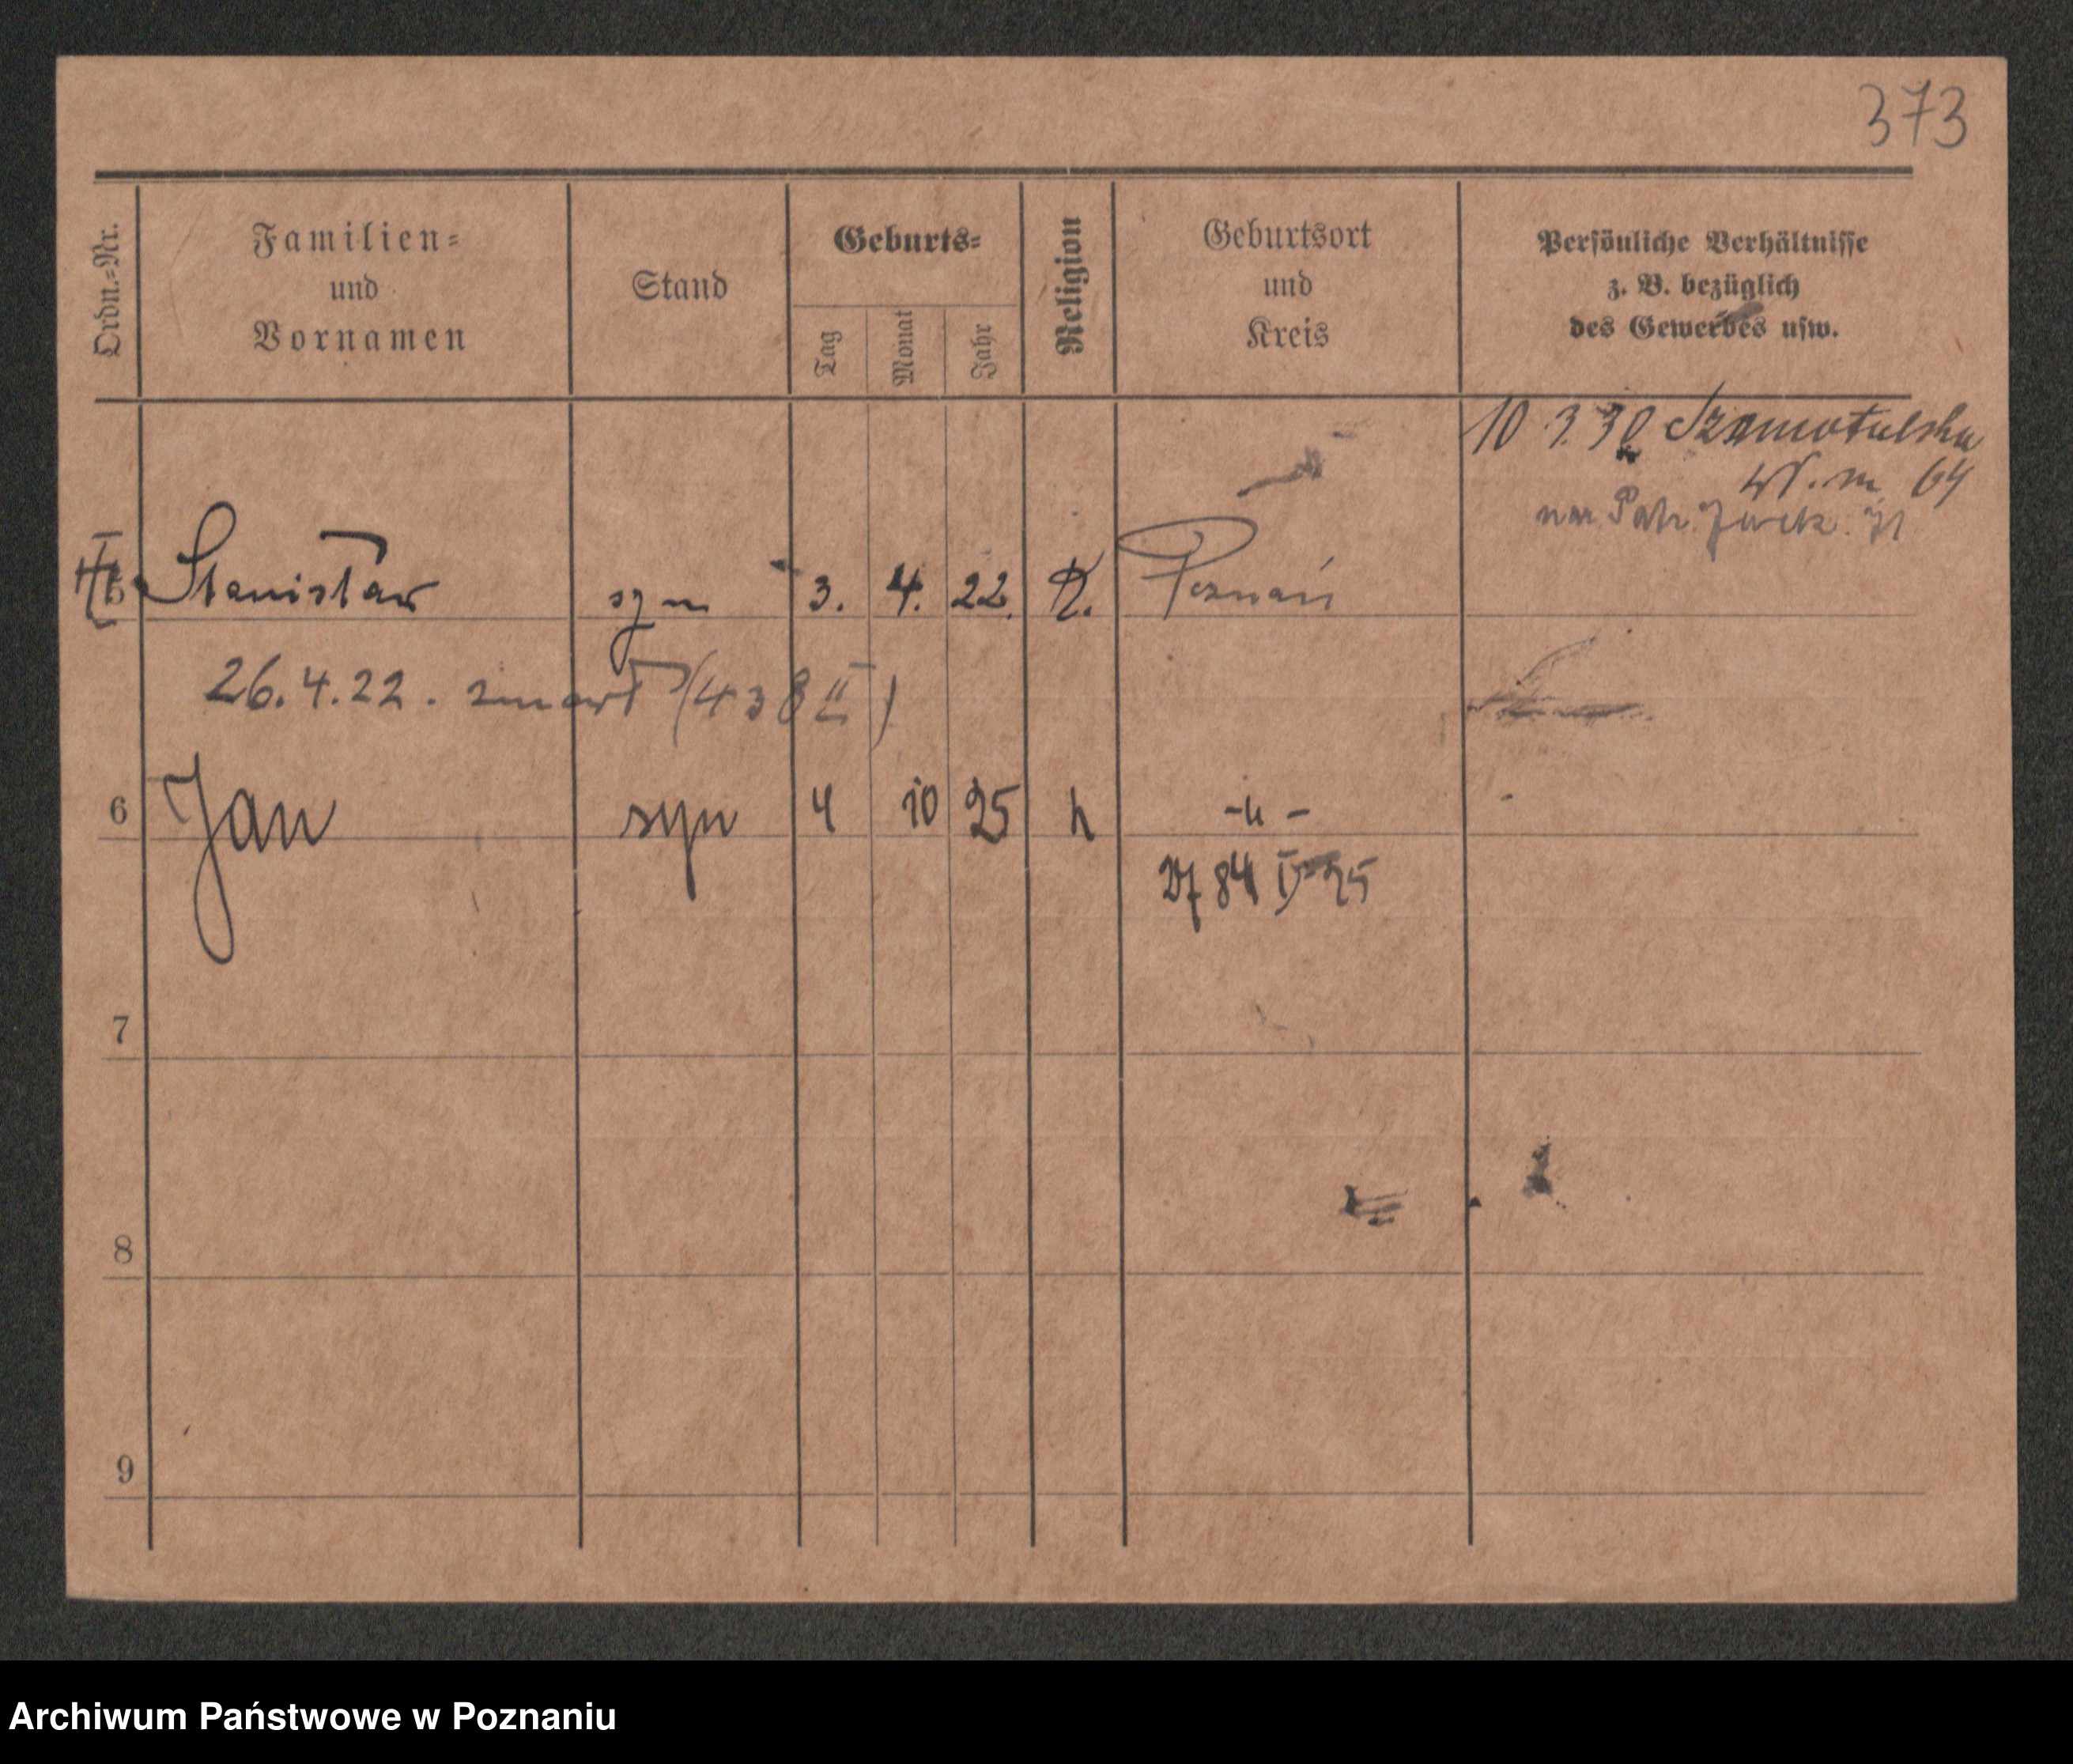 373
Ordn.-Nr.
Familien-
und
Vornamen
Stand
Geburts-
Tag
Monat
Jahr
Religion
Geburtsort
und
Kreis
Persönliche Verhältnisse
z. B. bezüglich
des Gewerbes usw.
10 3.30 Szamotulska
64
5 Stanisław syn 3. 4. 22. K. Poznań
26.4.22. zmarł (438 II)
6 Jan syn 4 10 25 k -"-
84 25
7
8
9
Archiwum Państwowe w Poznaniu